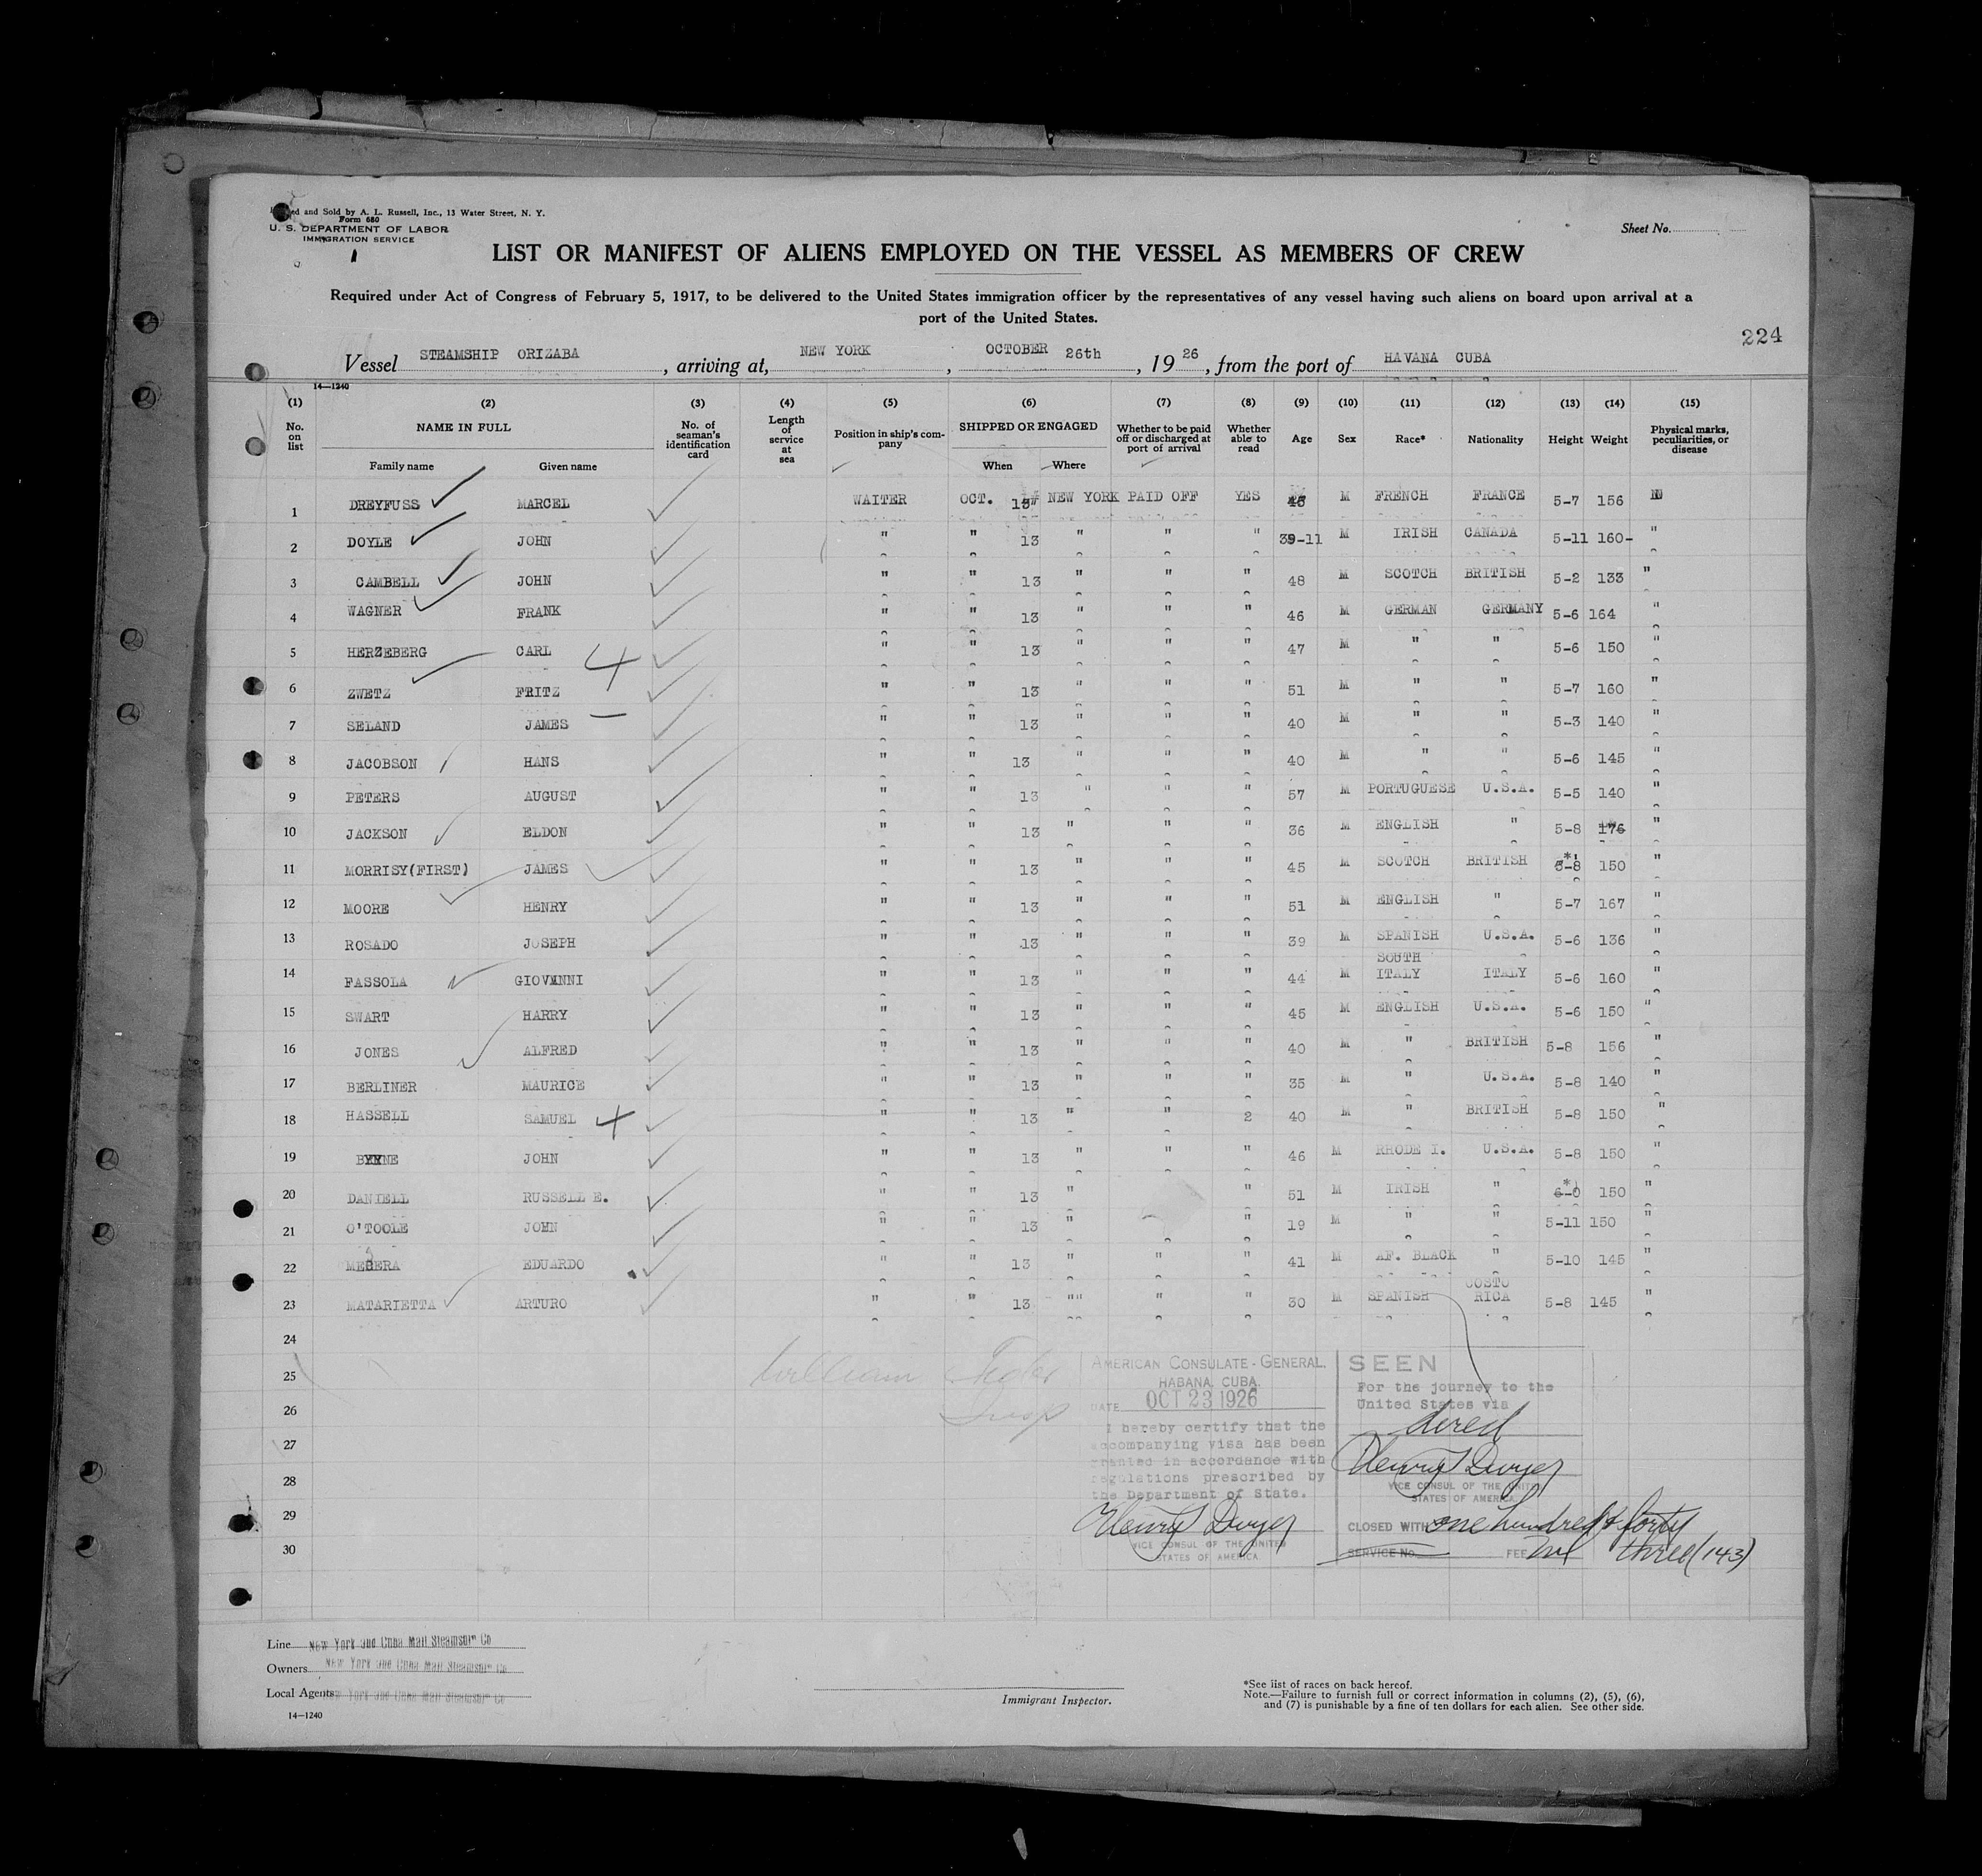 ed and Sold by A. L. Russell, Inc., 13 Water Street, N. Y.
Form 680
U. S. DEPARTMENT OF LABOR
IMMIGRATION SERVICE
Sheet No.
LIST OR MANIFEST OF ALIENS EMPLOYED ON THE VESSEL AS MEMBERS OF CREW
Required under Act of Congress of February 5, 1917, to be delivered to the United States immigration officer by the representatives of any vessel having such aliens on board upon arrival at a
port of the United States.
224
Vessel STEAMSHIP ORIZABA, arriving at, NEW YORK, OCTOBER 26th, 1926, from the port of HAVANA CUBA
14—1240
(1) (2) (3) (4) (5) (6) (7) (8) (9) (10) (11) (12) (13) (14) (15)
No. on list NAME IN FULL Family name Given name No. of seaman's identification card Length of service at sea Position in ship's company SHIPPED OR ENGAGED When Where Whether to be paid off or discharged at port of arrival Whether able to read Age Sex Race* Nationality Height Weight Physical marks, peculiarities, or disease
1 DREYFUSS MARCEL WAITER OCT. 13 NEW YORK PAID OFF YES M FRENCH FRANCE 5-7 156
2 DOYLE JOHN " " 13 " " " 39-11 M IRISH CANADA 5-11 160- "
3 CAMBELL JOHN " " 13 " " " 48 M SCOTCH BRITISH 5-2 133 "
4 WAGNER FRANK " " 13 " " " 46 M GERMAN GERMANY 5-6 164 "
5 HERZEBERG CARL " " 13 " " " 47 M " " 5-6 150 "
6 ZWETZ FRITZ " " 13 " " " 51 M " " 5-7 160 "
7 SELAND JAMES " " 13 " " " 40 M " " 5-3 140 "
8 JACOBSON HANS " " 13 " " " 40 M " " 5-6 145 "
9 PETERS AUGUST " " 13 " " " 57 M PORTUGUESE U.S.A. 5-5 140 "
10 JACKSON ELDON " " 13 " " " 36 M ENGLISH " 5-8 176 "
11 MORRISY(FIRST) JAMES " " 13 " " " 45 M SCOTCH BRITISH 5-8 150 "
12 MOORE HENRY " " 13 " " " 51 M ENGLISH " 5-7 167 "
13 ROSADO JOSEPH " " 13 " " " 39 M SPANISH U.S.A. 5-6 136 "
14 FASSOLA GIOVANNI " " 13 " " " 44 M SOUTH ITALY ITALY 5-6 160 "
15 SWART HARRY " " 13 " " " 45 M ENGLISH U.S.A. 5-6 150 "
16 JONES ALFRED " " 13 " " " 40 M " BRITISH 5-8 156 "
17 BERLINER MAURICE " " 13 " " " 35 M " U.S.A. 5-8 140 "
18 HASSELL SAMUEL " " 13 " " 2 40 M " BRITISH 5-8 150 "
19 JOHN " " 13 " " " 46 M RHODE I. U.S.A. 5-8 150 "
20 DANIELL RUSSELL E. " " 13 " " 51 M IRISH " 6-0 150 "
21 O'TOOLE JOHN " " 13 " " 19 M " " 5-11 150 "
22 EDUARDO " " 13 " " " 41 M AF. BLACK " 5-10 145 "
23 MATARIETTA ARTURO " " 13 "" " " 30 M SPANISH COSTO RICA 5-8 145 "
24
25
26
27
28
29
30
William
Insp
AMERICAN CONSULATE-GENERAL.
HABANA, CUBA.
DATE OCT 23 1926
I hereby certify that the
accompanying visa has been
granted in accordance with
regulations prescribed by
the Department of State.
Henry Dwyer
VICE CONSUL OF THE UNITED
STATES OF AMERICA
SEEN
For the journey to the
United States via
direct
Henry Dwyer
VICE CONSUL OF THE UNITED
STATES OF AMERICA.
CLOSED WITH one hundred & forty
three (143)
SERVICE No. FEE
Line New York and Cuba Mail Steamship Co
Owners New York and Cuba Mail Steamship Co
Local Agents New York and Cuba Mail Steamship Co
14—1240
Immigrant Inspector.
*See list of races on back hereof.
Note.—Failure to furnish full or correct information in columns (2), (5), (6),
and (7) is punishable by a fine of ten dollars for each alien. See other side.